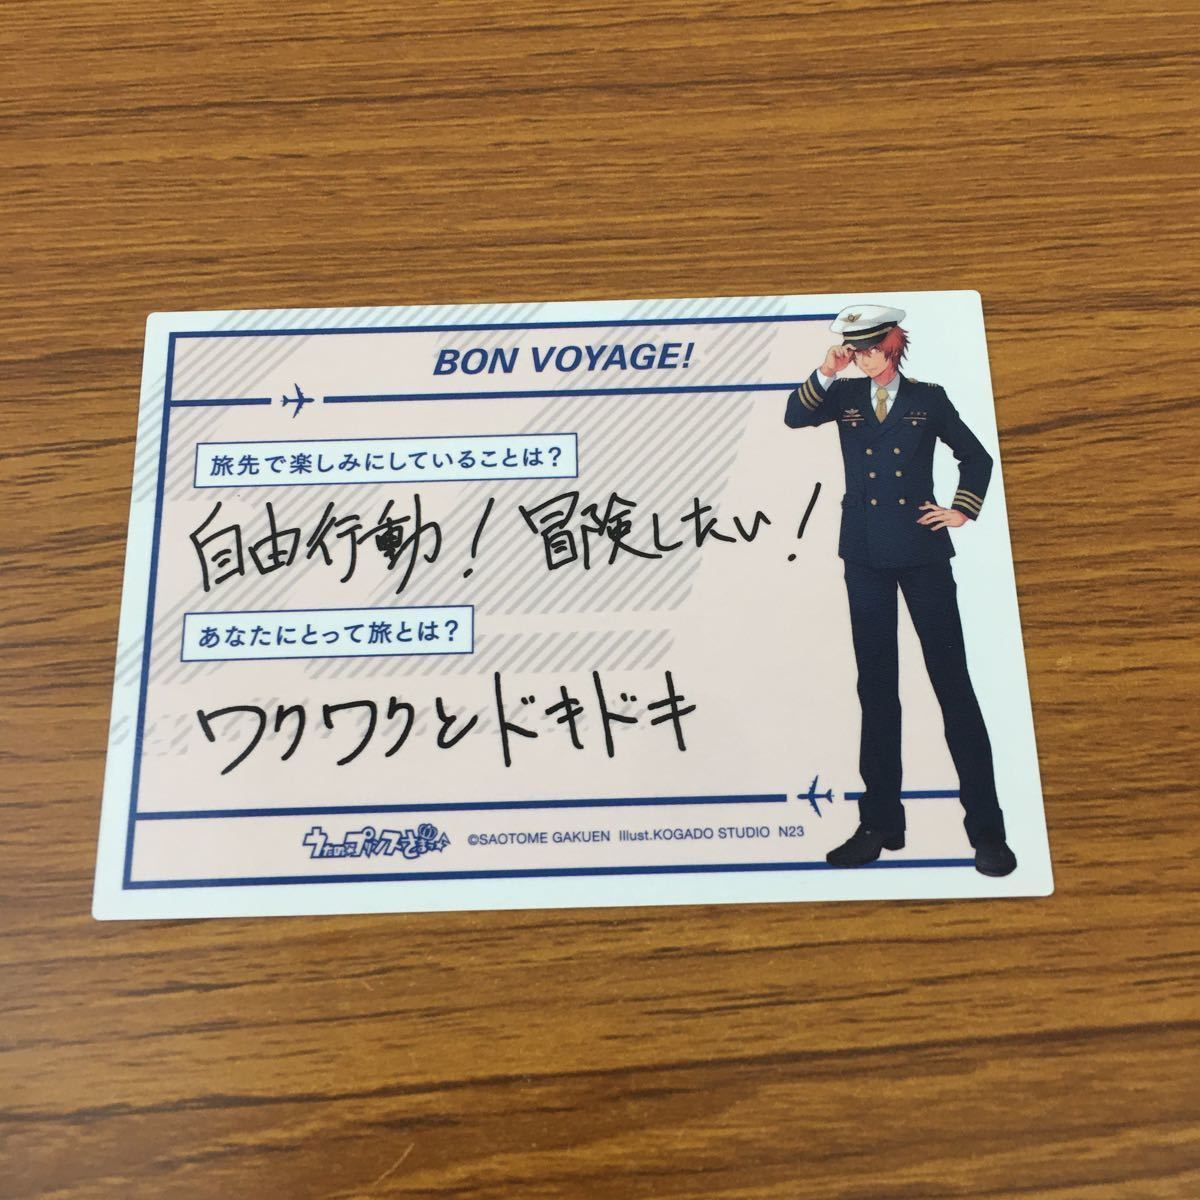 BON VOYAGE!
旅先で楽しみにしていることは？
自由行動！冒険したい！
あなたにとって旅とは？
ワクワクとドキドキ
うたの☆プリンスさまっ♪
©SAOTOME GAKUEN Illust.KOGADO STUDIO N23